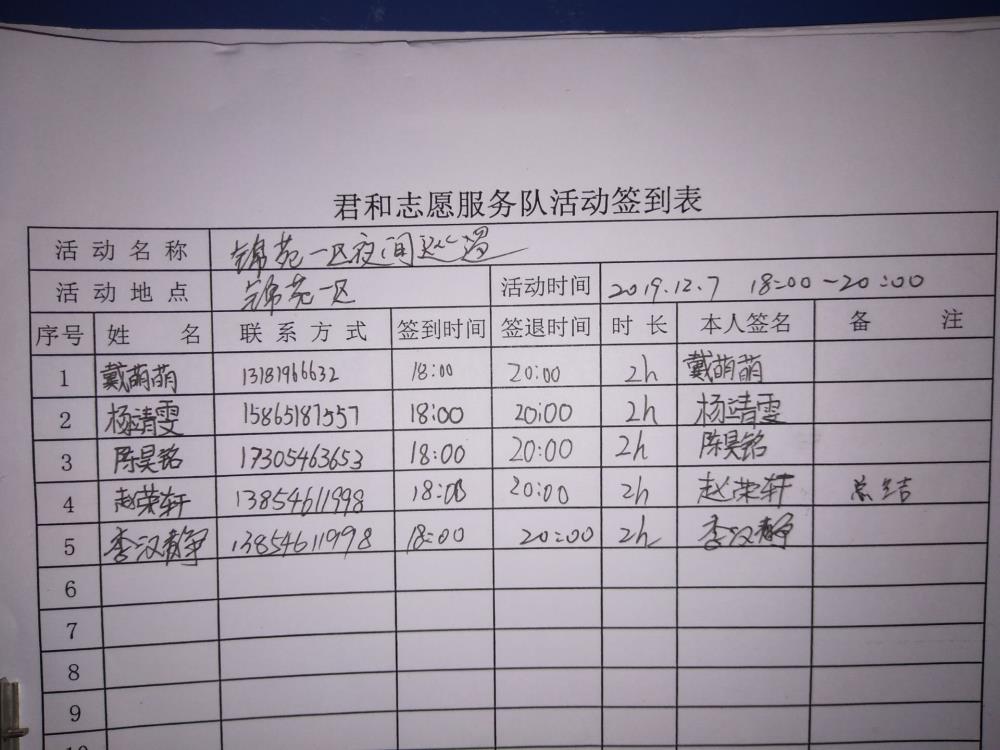 君和志愿服务队活动签到表
活动名称 锦苑一区夜间巡逻
活动地点 锦苑一区 活动时间 2019.12.7 18:00-20:00
序号 姓名 联系方式 签到时间 签退时间 时长 本人签名 备注
1 戴萌萌 13181966632 18:00 20:00 2h 戴萌萌
2 杨靖雯 15865187557 18:00 20:00 2h 杨靖雯
3 陈昊铭 17305463653 18:00 20:00 2h 陈昊铭
4 赵荣轩 13854611998 18:00 20:00 2h 赵荣轩 总结
5 李汉静 13854611998 18:00 20:00 2h 李汉静
6
7
8
9
10